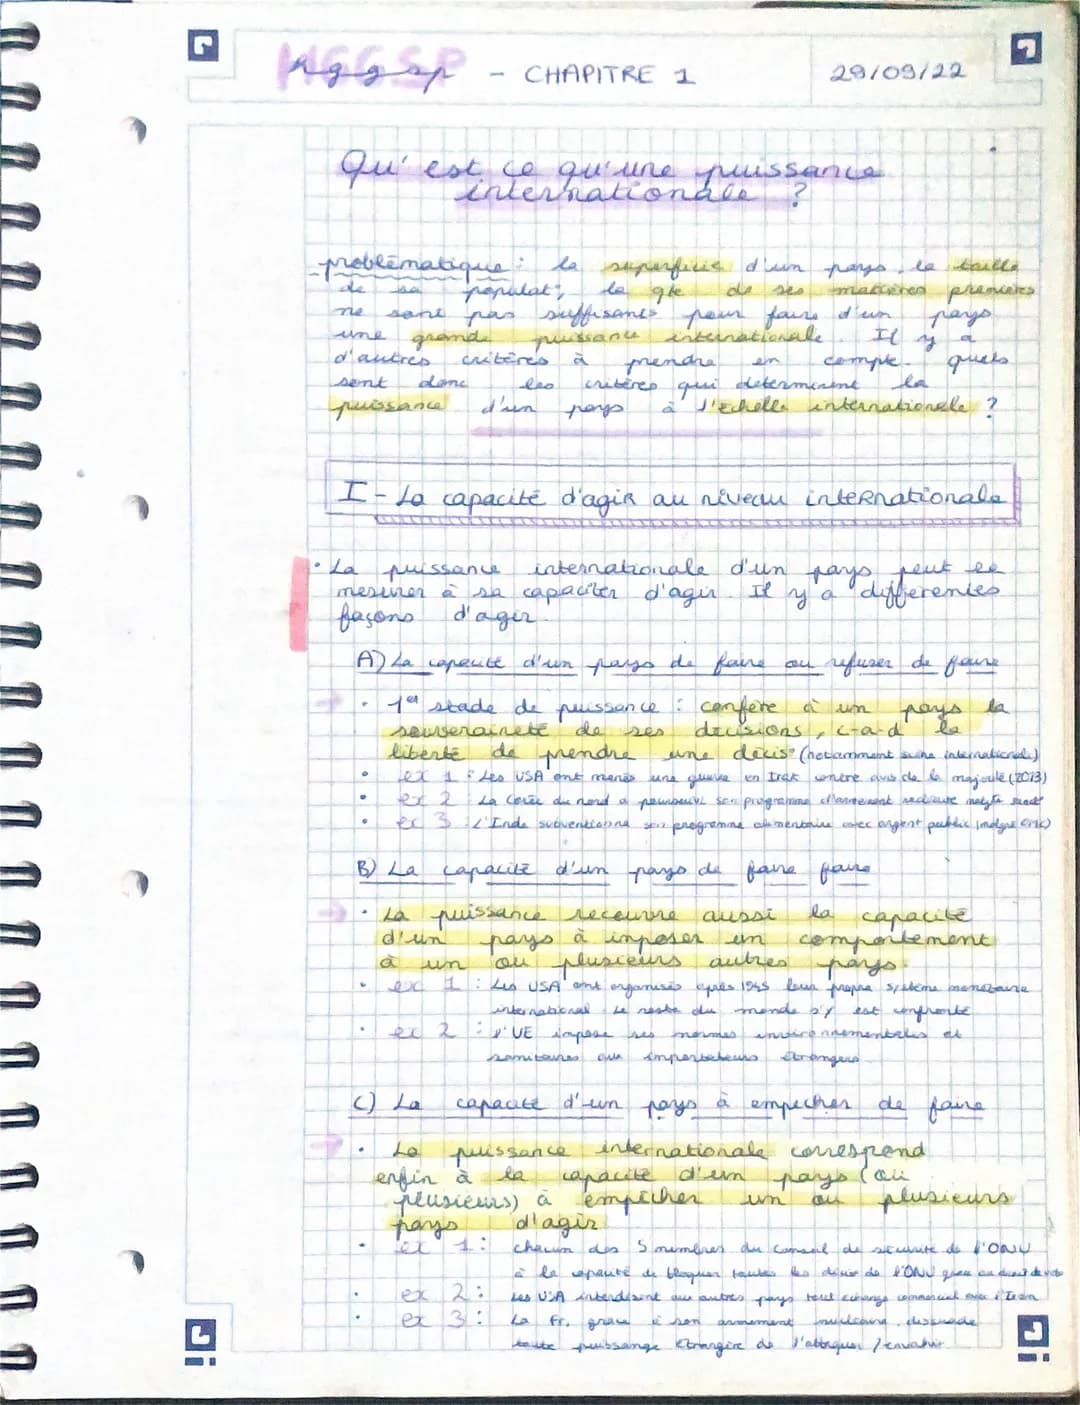 HGGSP
Hggsp - CHAPITRE 1
29/09/22
Qu'est ce qu'une puissance
internationale ?
problèmatique : la superficie d'un pays, la taille
de sa populat°, la qte de ses matières premières
ne sont pas suffisants pour faire d'un pays
une grande puissance internationale. Il y a
d'autres critères à prendre en compte. quels
sont donc les critères qui determinent la
puissance d'un pays à l'échelle internationale ?
I - La capacité d'agir au niveau internationale
· La puissance internationale d'un pays peut se
mesurer à sa capaciter d'agir. Il y a differentes
façons d'agir.
A) La capacité d'un pays de faire ou refuser de faire
→ · 1er stade de puissance : confère à un pays la
souveraineté de ses décisions, c-a-d la
liberté de prendre une décis° (notamment scène internationale)
· ex 1 : Les USA ont menés une guerre en Irak contre avis de la majorité (2013)
· ex 2 : La Corée du nord a poursuivi son programme d'armement nucléaire malgré sanct°
· ex 3 : L'Inde subventionne son programme alimentaire avec argent public (malgré OMC)
B) La capacité d'un pays de faire faire
→ · La puissance recouvre aussi la capacité
d'un pays à imposer un comportement
à un ou plusieurs autres pays.
· ex 1 : Les USA ont organisés après 1945 leur propre système monétaire
international. Le reste du monde s'y est confronté
· ex 2 : l'UE impose ses normes environnementales et
sanitaires aux importateurs étrangers.
C) La capacité d'un pays à empecher de faire
→ · La puissance internationale correspond
enfin à la capacité d'un pays (ou
plusieurs) à empêcher un ou plusieurs
pays d'agir
· ex 1 : chacun des 5 membres du conseil de sécurité de l'ONU
à la capacité de bloquer toutes les décis° de l'ONU grace au droit de veto
· ex 2 : Les USA interdisent aux autres pays tout échange commercial avec l'Iran
· ex 3 : La Fr. grace à son armement nucléaire, dissuade
toute puissance étrangère de l'attaquer / envahir